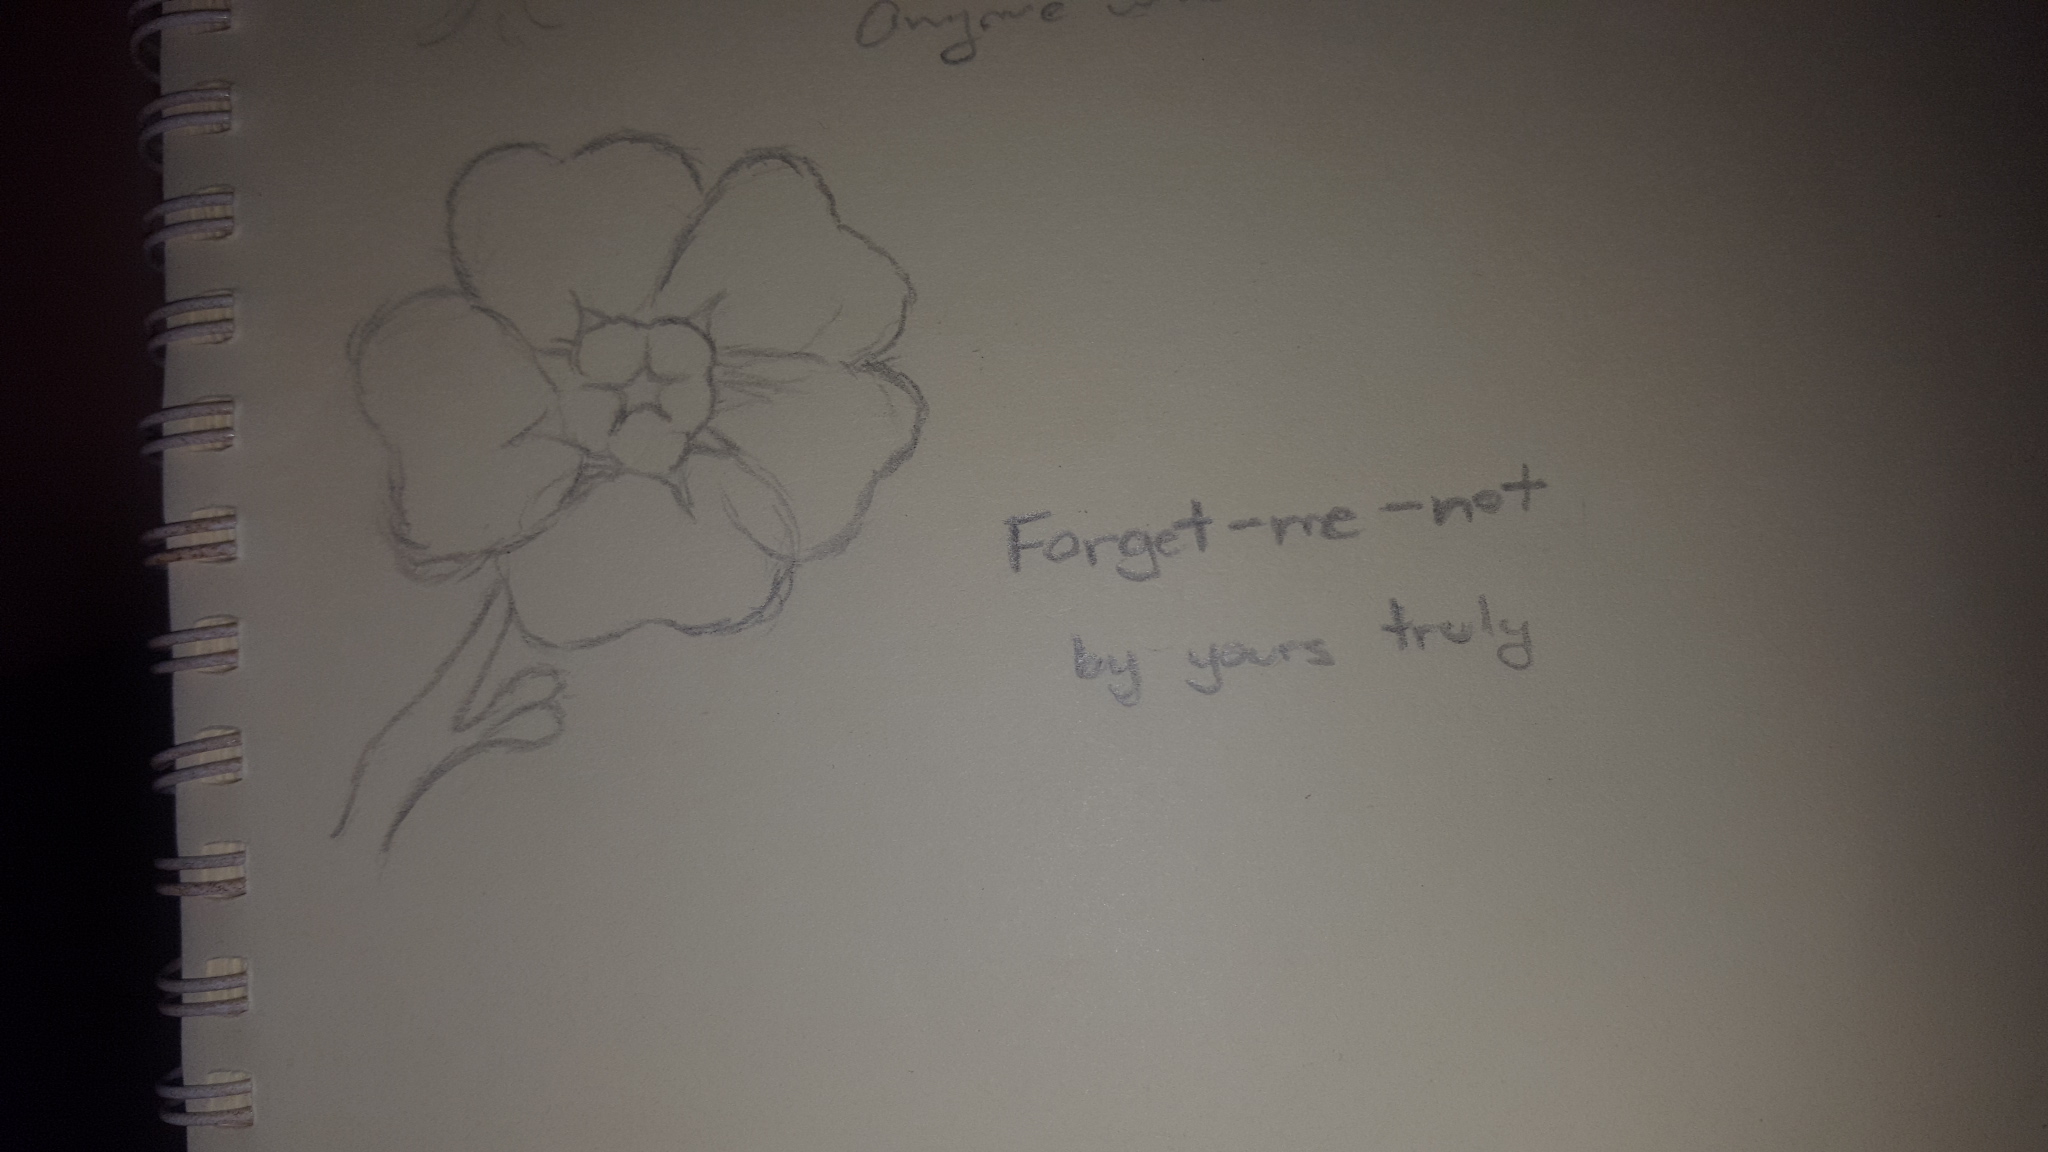 Anyone
Forget-me-not
by yours truly